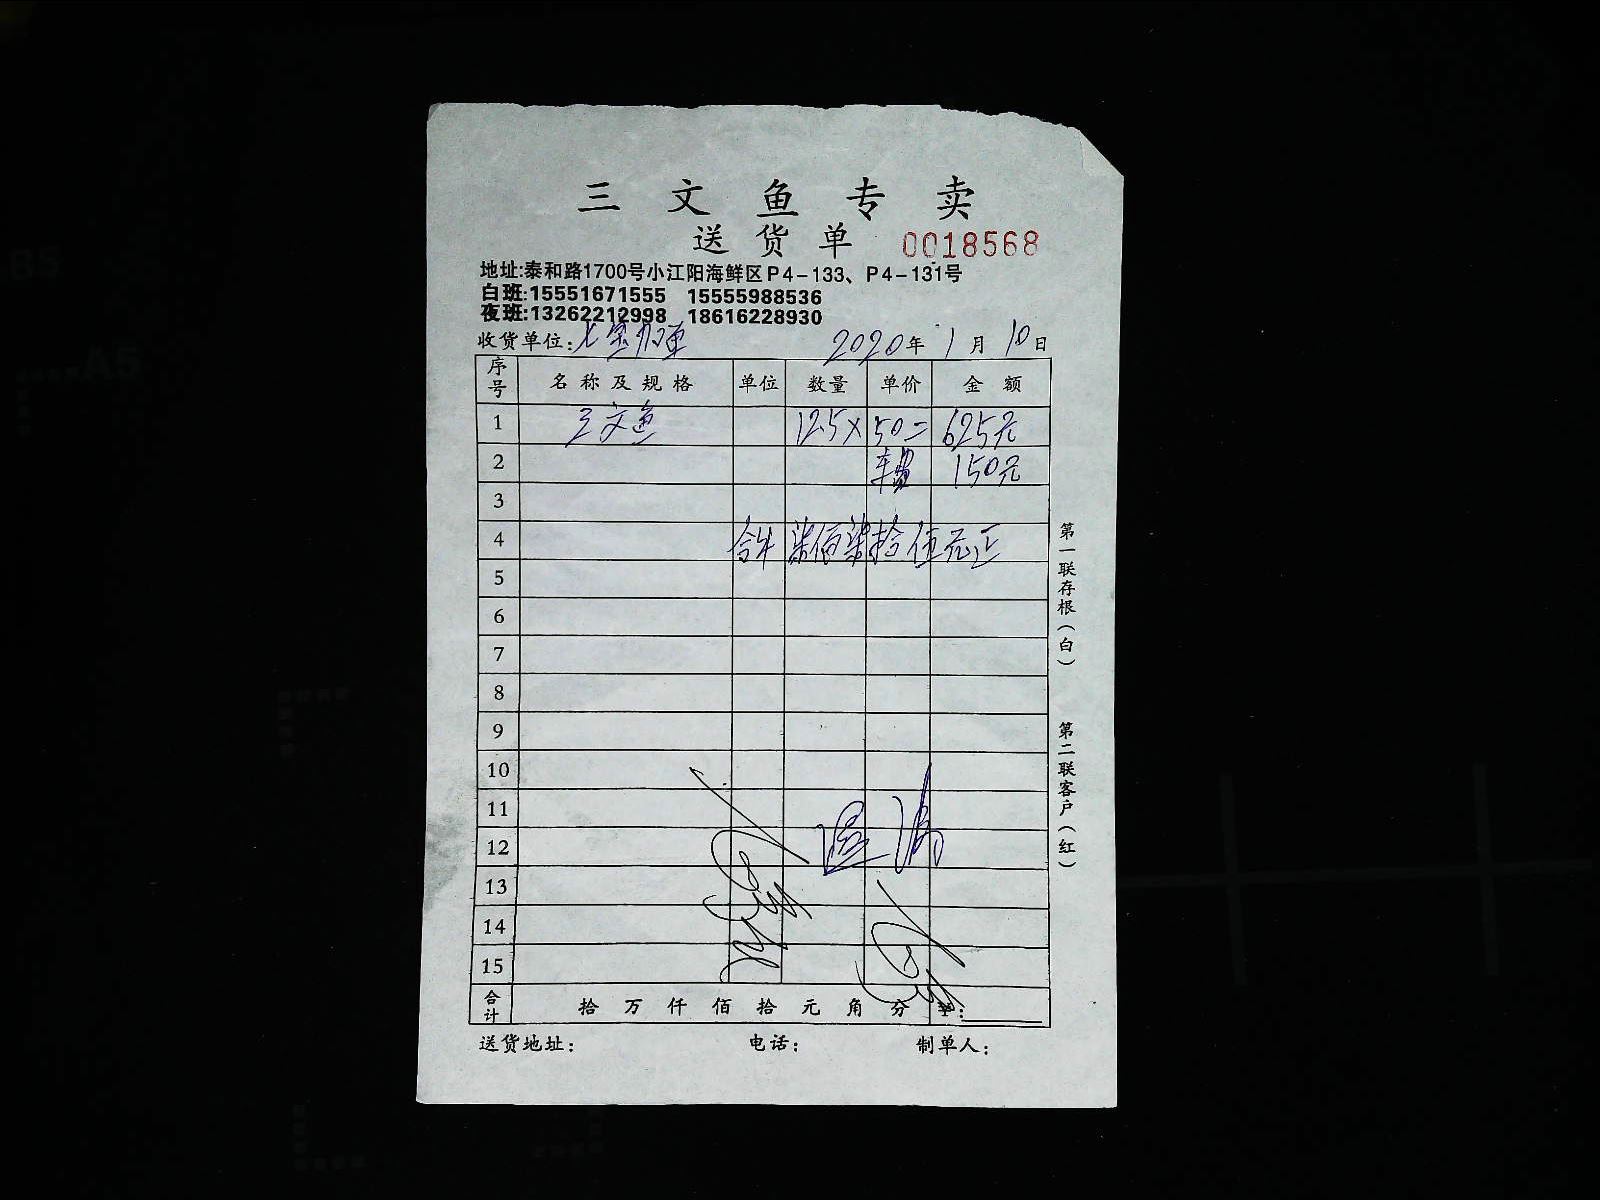 三文鱼专卖
送货单 0018568
地址:泰和路1700号小江阳海鲜区P4-133、P4-131号
白班:15551671555 15555988536
夜班:13262212998 18616228930
收货单位:七宝 2020年1月10日
序号 名称及规格 单位 数量 单价 金额
1 三文鱼 12.5× 50= 625元
2 车费 150元
3
4 合计 柒佰柒拾伍元正
5
6
7
8
9
10
11
12
13
14
15
合计 拾 万 仟 佰 拾 元 角 分 ¥:
送货地址: 电话: 制单人:
第一联存根(白)
第二联客户(红)